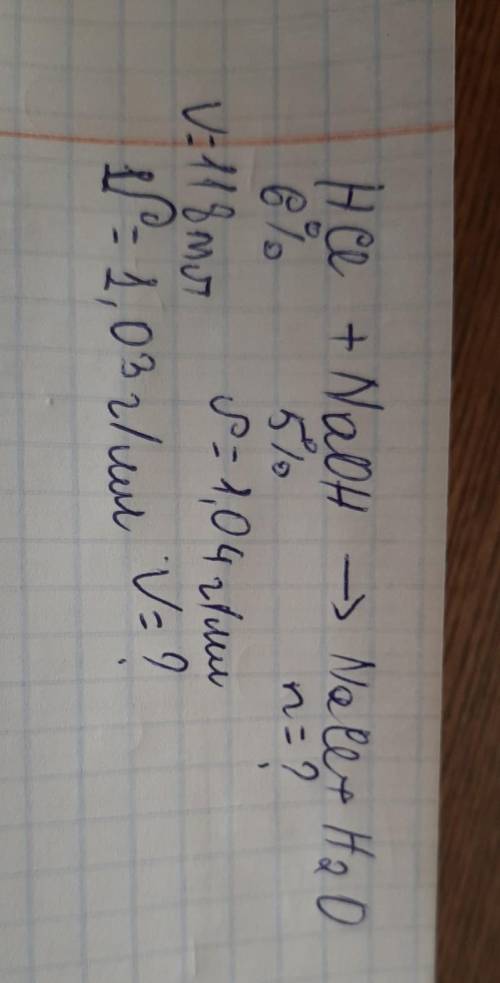 HCl + NaOH → NaCl + H₂O
6% 5% n=?
V=118мл ρ=1,04г/мл
ρ=1,03г/мл V=?